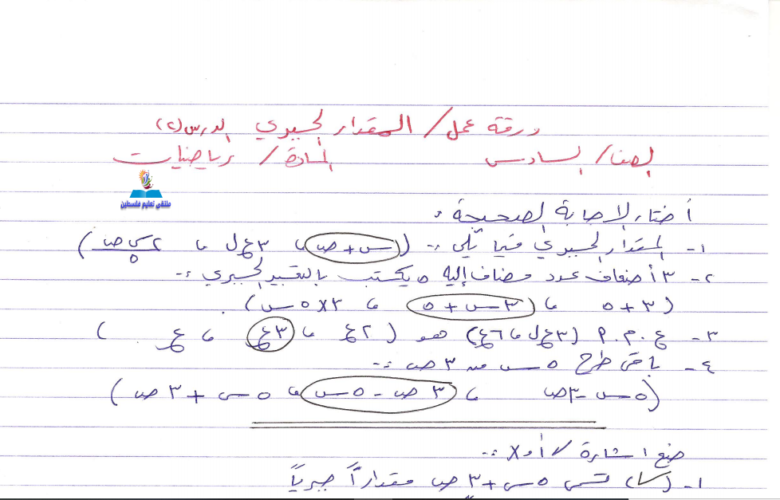 ورقة عمل / المقدار الجبري الدرس (٢)
الصف / السادس المادة / رياضيات
ملتقى تعليم فلسطين
أختار الإجابة الصحيحة :
١- المقدار الجبري فيما يلي :- (س + ص ، ٣ع ل ، ٢س ص/٥)
٢- ٣ أضعاف عدد مضاف إليه ٥ يكتب بالتعبير الجبري :-
(٣ + ٥ ، ٣س + ٥ ، ٣ × ٥س).
٣- ع . م . ٩ (٣ع ل ، ٦ع) هو (٢ع ، ٣ع ، ع)
٤- باقي طرح ٥س من ٣ص :-
(٥س - ٣ص ، ٣ص - ٥س ، ٥س + ٣ص)
ضع اشارة ✓ أو × :-
١- (✓) تسمى ٥س + ٣ص مقداراً جبرياً